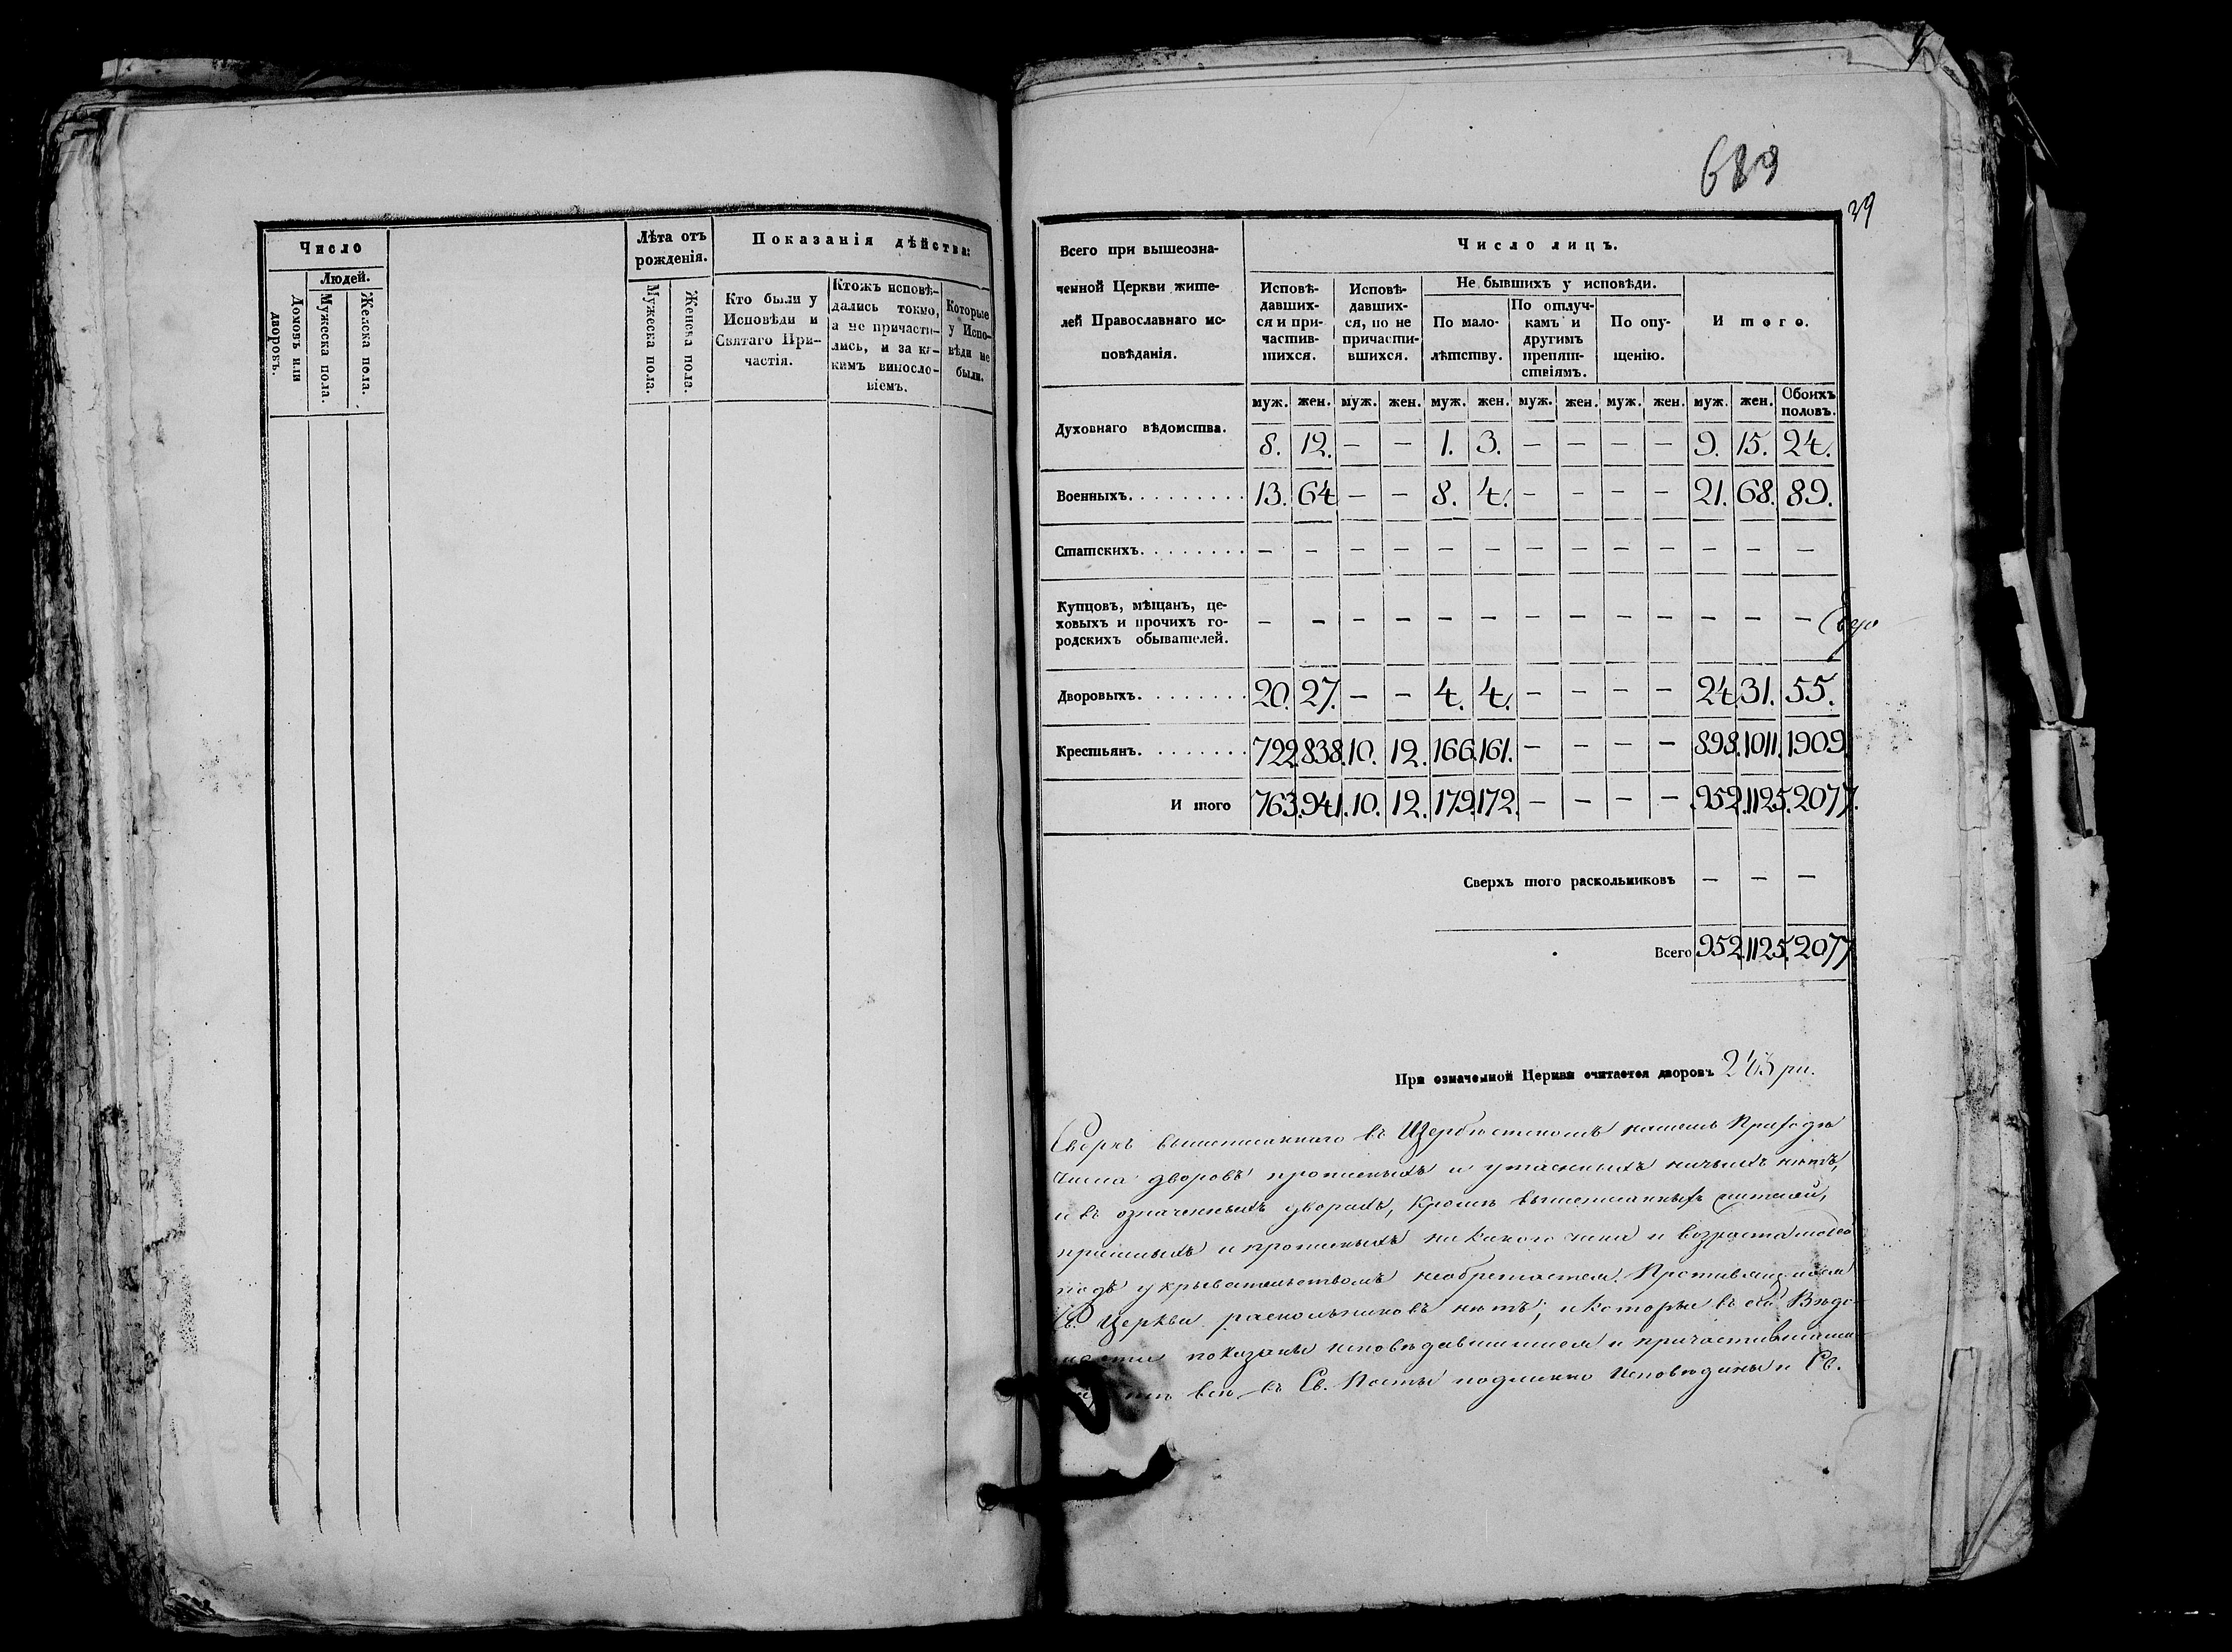 Число
Людей.
Домовъ или дворовъ.
Мужеска пола.
Женска пола.
Лѣта отъ
рожденія.
Мужеска пола.
Женска пола.
Показанія дѣйства:
Кто были у
Исповѣди и
Святаго При-
частія.
Ктожъ исповѣ-
дались токмо,
а не причасти-
лись, и за ка-
кимъ винослo-
віемъ.
Которые
у Испо-
вѣди не
были.
689
39
Всего при вышеозна-
ченной Церкви жите-
лей Православнаго ис-
повѣданія.
Число лицъ.
Исповѣ-
давших-
ся и при-
частив-
шихся.
Исповѣ-
давших-
ся, но не
причасти-
вшихся.
Не бывшихъ у исповѣди.
По мало-
лѣтству.
По отлуч-
камъ и
другимъ
препят-
ствіямъ.
По опу-
щенію.
И того.
муж. жен. муж. жен. муж. жен. муж. жен. муж. жен. муж. жен. Обоихъ половъ.
Духовнаго вѣдомства. 8. 12. — — 1. 3. — — — — 9. 15. 24.
Военныхъ......... 13. 64 — — 8. 4. — — — — 21. 68. 89.
Статскихъ........ — — — — — — — — — — — — —
Купцовъ, мѣщанъ, це-
ховыхъ и прочихъ го-
родскихъ обывателей. — — — — — — — — — — — — —
Дворовыхъ........ 20. 27. — — 4. 4. — — — — 24 31. 55.
Крестьянъ........ 722. 838. 10. 12. 166. 161. — — — — 898. 1011. 1909.
И того 763. 941. 10. 12. 179. 172. — — — — 952. 1125. 2077.
Сверхъ того раскольниковъ — — —
Всего 952. 1125. 2077
При означенной Церкви считается дворовъ
Сверхъ вышеписаннаго въ нашемъ Приходѣ
числа дворовъ прописныхъ и утаенныхъ нѣтъ,
и въ означенныхъ дворахъ, кромѣ вышеписанныхъ жителей,
пришлыхъ и прописныхъ никакого чина и возраста людей
подъ укрывательствомъ необрѣтается. Противящихся
Св. Церкви раскольниковъ нѣтъ; и которые въ сей Вѣдо-
мости показаны исповѣдавшимися и причастившимися
всѣ въ Св. Посты подлинно исповѣданы и Св.